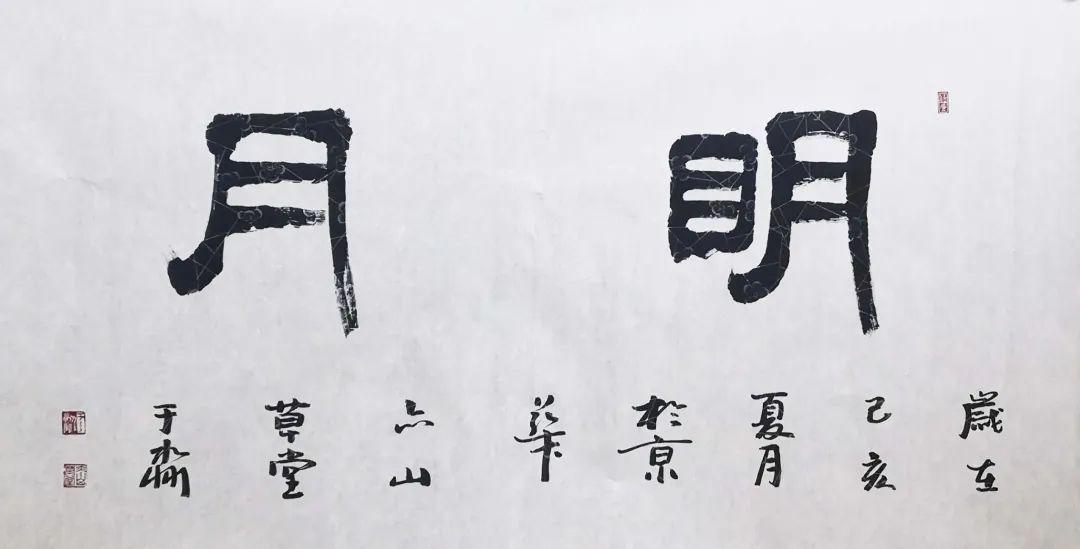 明月
歲在
己亥
夏月
於京
華
山
草堂
于淼